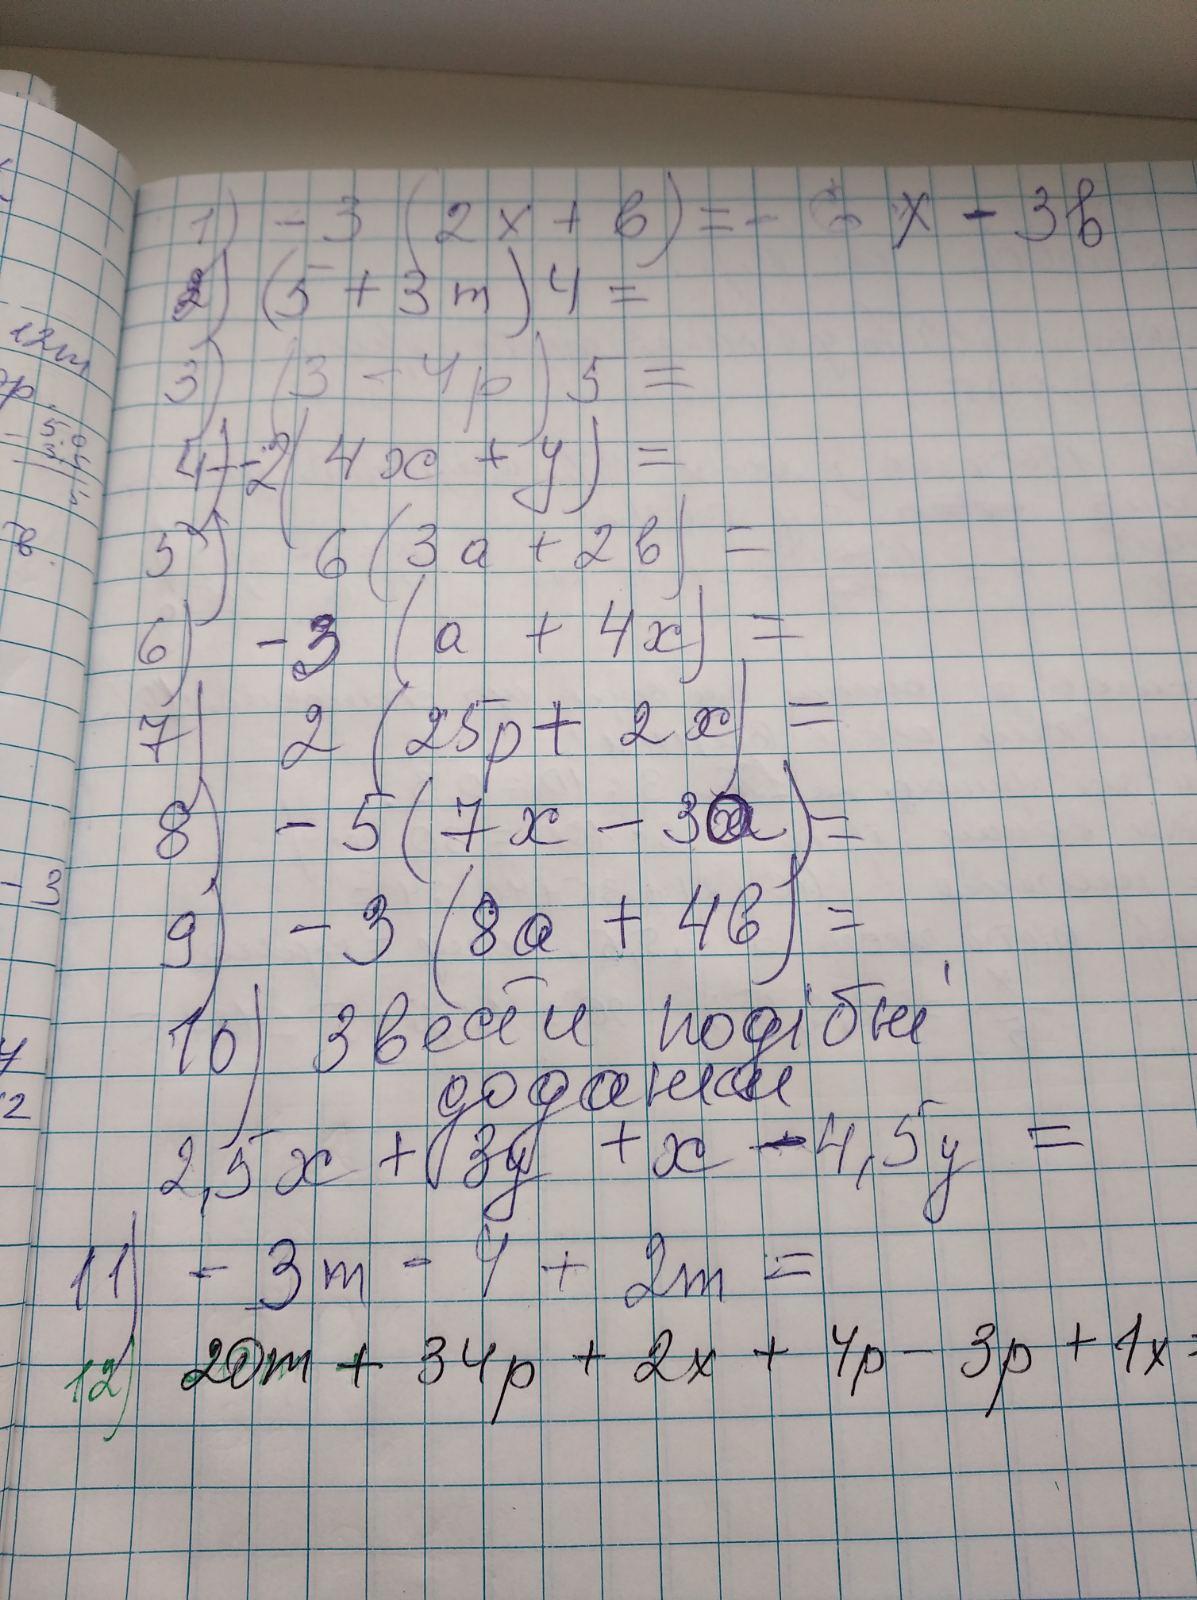 1) - 3 (2x + b) = - 6 x - 3b
2) (5 + 3m) 4 =
3) (3 - 4p) 5 =
4) -2 (4x + y) =
5) 6 (3a + 2b) =
6) - 3 (a + 4x) =
7) 2 (25p + 2x) =
8) - 5 (7x - 3a) =
9) - 3 (8a + 4b) =
10) Звести подібні
доданки
2,5x + 3y + x - 4,5y =
11) - 3m - 4 + 2m =
12) 20m + 34p + 2x + 4p - 3p + 1x =
12m
- 3